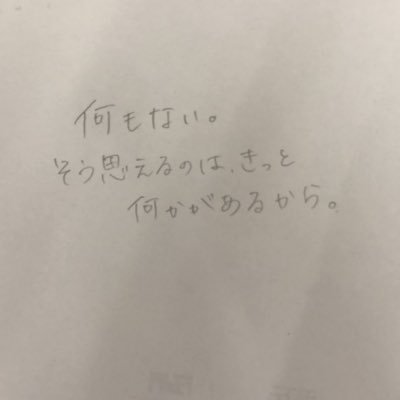 何もない。
そう思えるのは、きっと
何かがあるから。